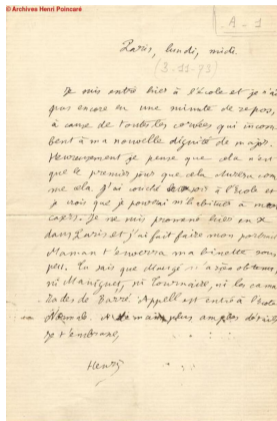 © Archives Henri Poincaré
A - 1
Paris, lundi, midi.
(3-11-73)
Je suis entré hier à l'École et je n'ai
pas encore eu une minute de repos,
à cause de toutes les corvées qui incom
bent à ma nouvelle dignité de major.
Heureusement je pense que cela n'est
que le premier jour que cela durera com
me cela. J'ai couché hier soir à l'école et
je crois que je pourrai m'habituer à mon
casert. Je me suis promené hier en
dans Paris et j'ai fait faire mon portrait
Maman t'enverra ma binette sous
peu. Tu sais que n'a rien obtenu,
ni ni Tournaire, ni les cama
rades de Barré. Appell est entré à l'école
Normale. A demain plus amples détails
Je t'embrasse,
Henri